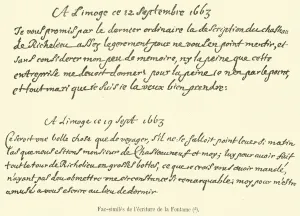 A Limoge ce 12 Septembre 1663
Je vous promis par le dernier ordinaire la description du chasteau
de Richelieu, assez legerement pour ne vous en point mentir, et
sans considerer mon peu de memoire, ny la peine que cette
entreprise me devoit donner. pour la peine, je n'en parle point,
et tout mary que je suis je la veux bien prendre:
A Limoge ce 19 Sept. 1663
Ce seroit une belle chose que de voyager, s'il ne se falloit point lever si matin
las que nous estions monsieur de Chasteauneuf et moy; luy pour avoir fait
tout le tour de Richelieu en grosses bottes, ce que je crois vous avoir mandé,
n'ayant pas deu obmettre une circonstance si remarquable; moy pour m'estre
amusé a vous escrire au lieu de dormir
Fac-similés de l'écriture de la Fontaine